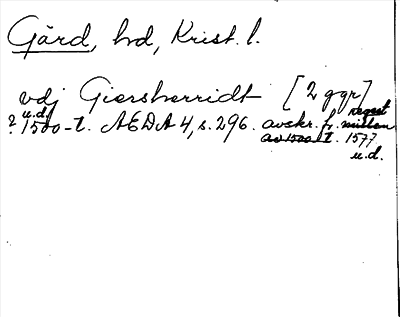 Gärd, hd, Krist. l.
vdj Giersherridt [2 ggr]
u.d. regest
? 1500-t. AEDA 4, s. 296. avskr. fr. mitten
av 1500-t. 1577
u.d.